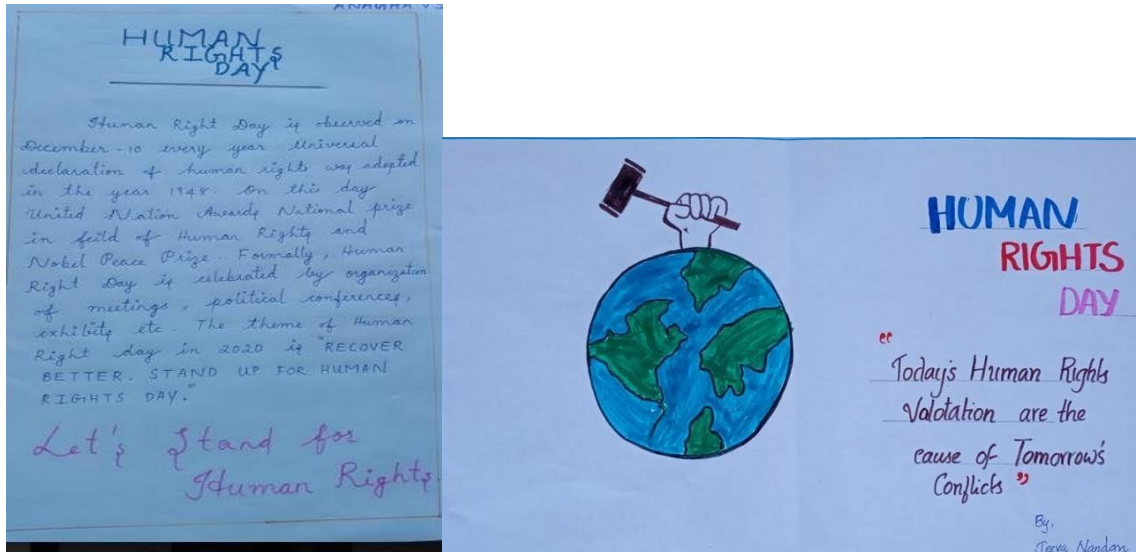 HUMAN
RIGHTS
DAY
Human Right Day is observed on
December-10 every year Universal
declaration of human rights was adopted
in the year 1948. On this day
United Nation Awards National prize
in feild of Human Rights and
Nobel Peace Prize. Formally, Human
Right Day is celebrated by organization
of meetings, political conferences,
exhibits etc. The theme of Human
Right day in 2020 is "RECOVER
BETTER. STAND UP FOR HUMAN
RIGHTS DAY."
Let's Stand for
Human Rights
HUMAN
RIGHTS
DAY
"Today's Human Rights
Valotation are the
cause of Tomorrow's
Conflicts"
By,
Jeeva Nandan